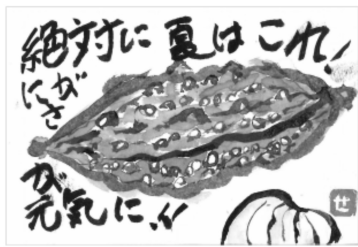 絶対に夏はこれ!
にがさ
が
元気に!!
せ